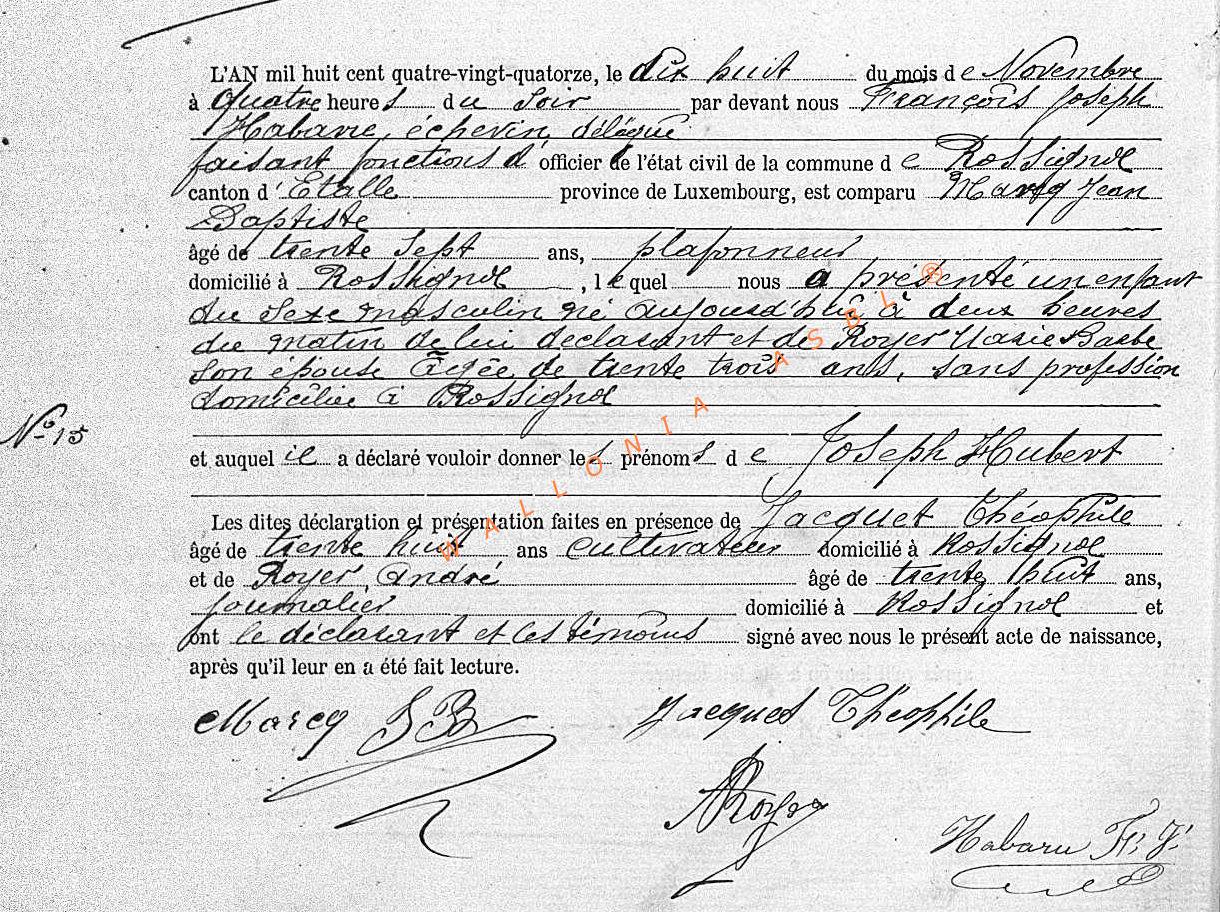 L'AN mil huit cent quatre-vingt-quatorze, le dix huit du mois de Novembre
à quatre heures du soir par devant nous François Joseph
Habaru, échevin délégué
faisant fonctions d'officier de l'état civil de la commune de Rossignol
canton d'Etalle province de Luxembourg, est comparu Marcq Jean
Baptiste
âgé de trente sept ans, plafonneur
domicilié à Rossignol, lequel nous a présenté un enfant
du sexe masculin né aujourd'hui à deux heures
du matin de lui declarant et de Royer Marie Barbe
son épouse Agée de trente trois ans, sans profession
domiciliée à Rossignol
No 15
et auquel il a déclaré vouloir donner les prénoms de Joseph Hubert
Les dites déclaration et présentation faites en présence de Jacquet Théophile
âgé de trente huit ans cultivateur domicilié à Rossignol
et de Royer André âgé de trente huit ans,
journalier domicilié à Rossignol et
ont le déclarant et les témoins signé avec nous le présent acte de naissance,
après qu'il leur en a été fait lecture.
Marcq J B
Jacquet Théophile
A Royer
Habaru Fr. J.
WALLONIA ASBL ®